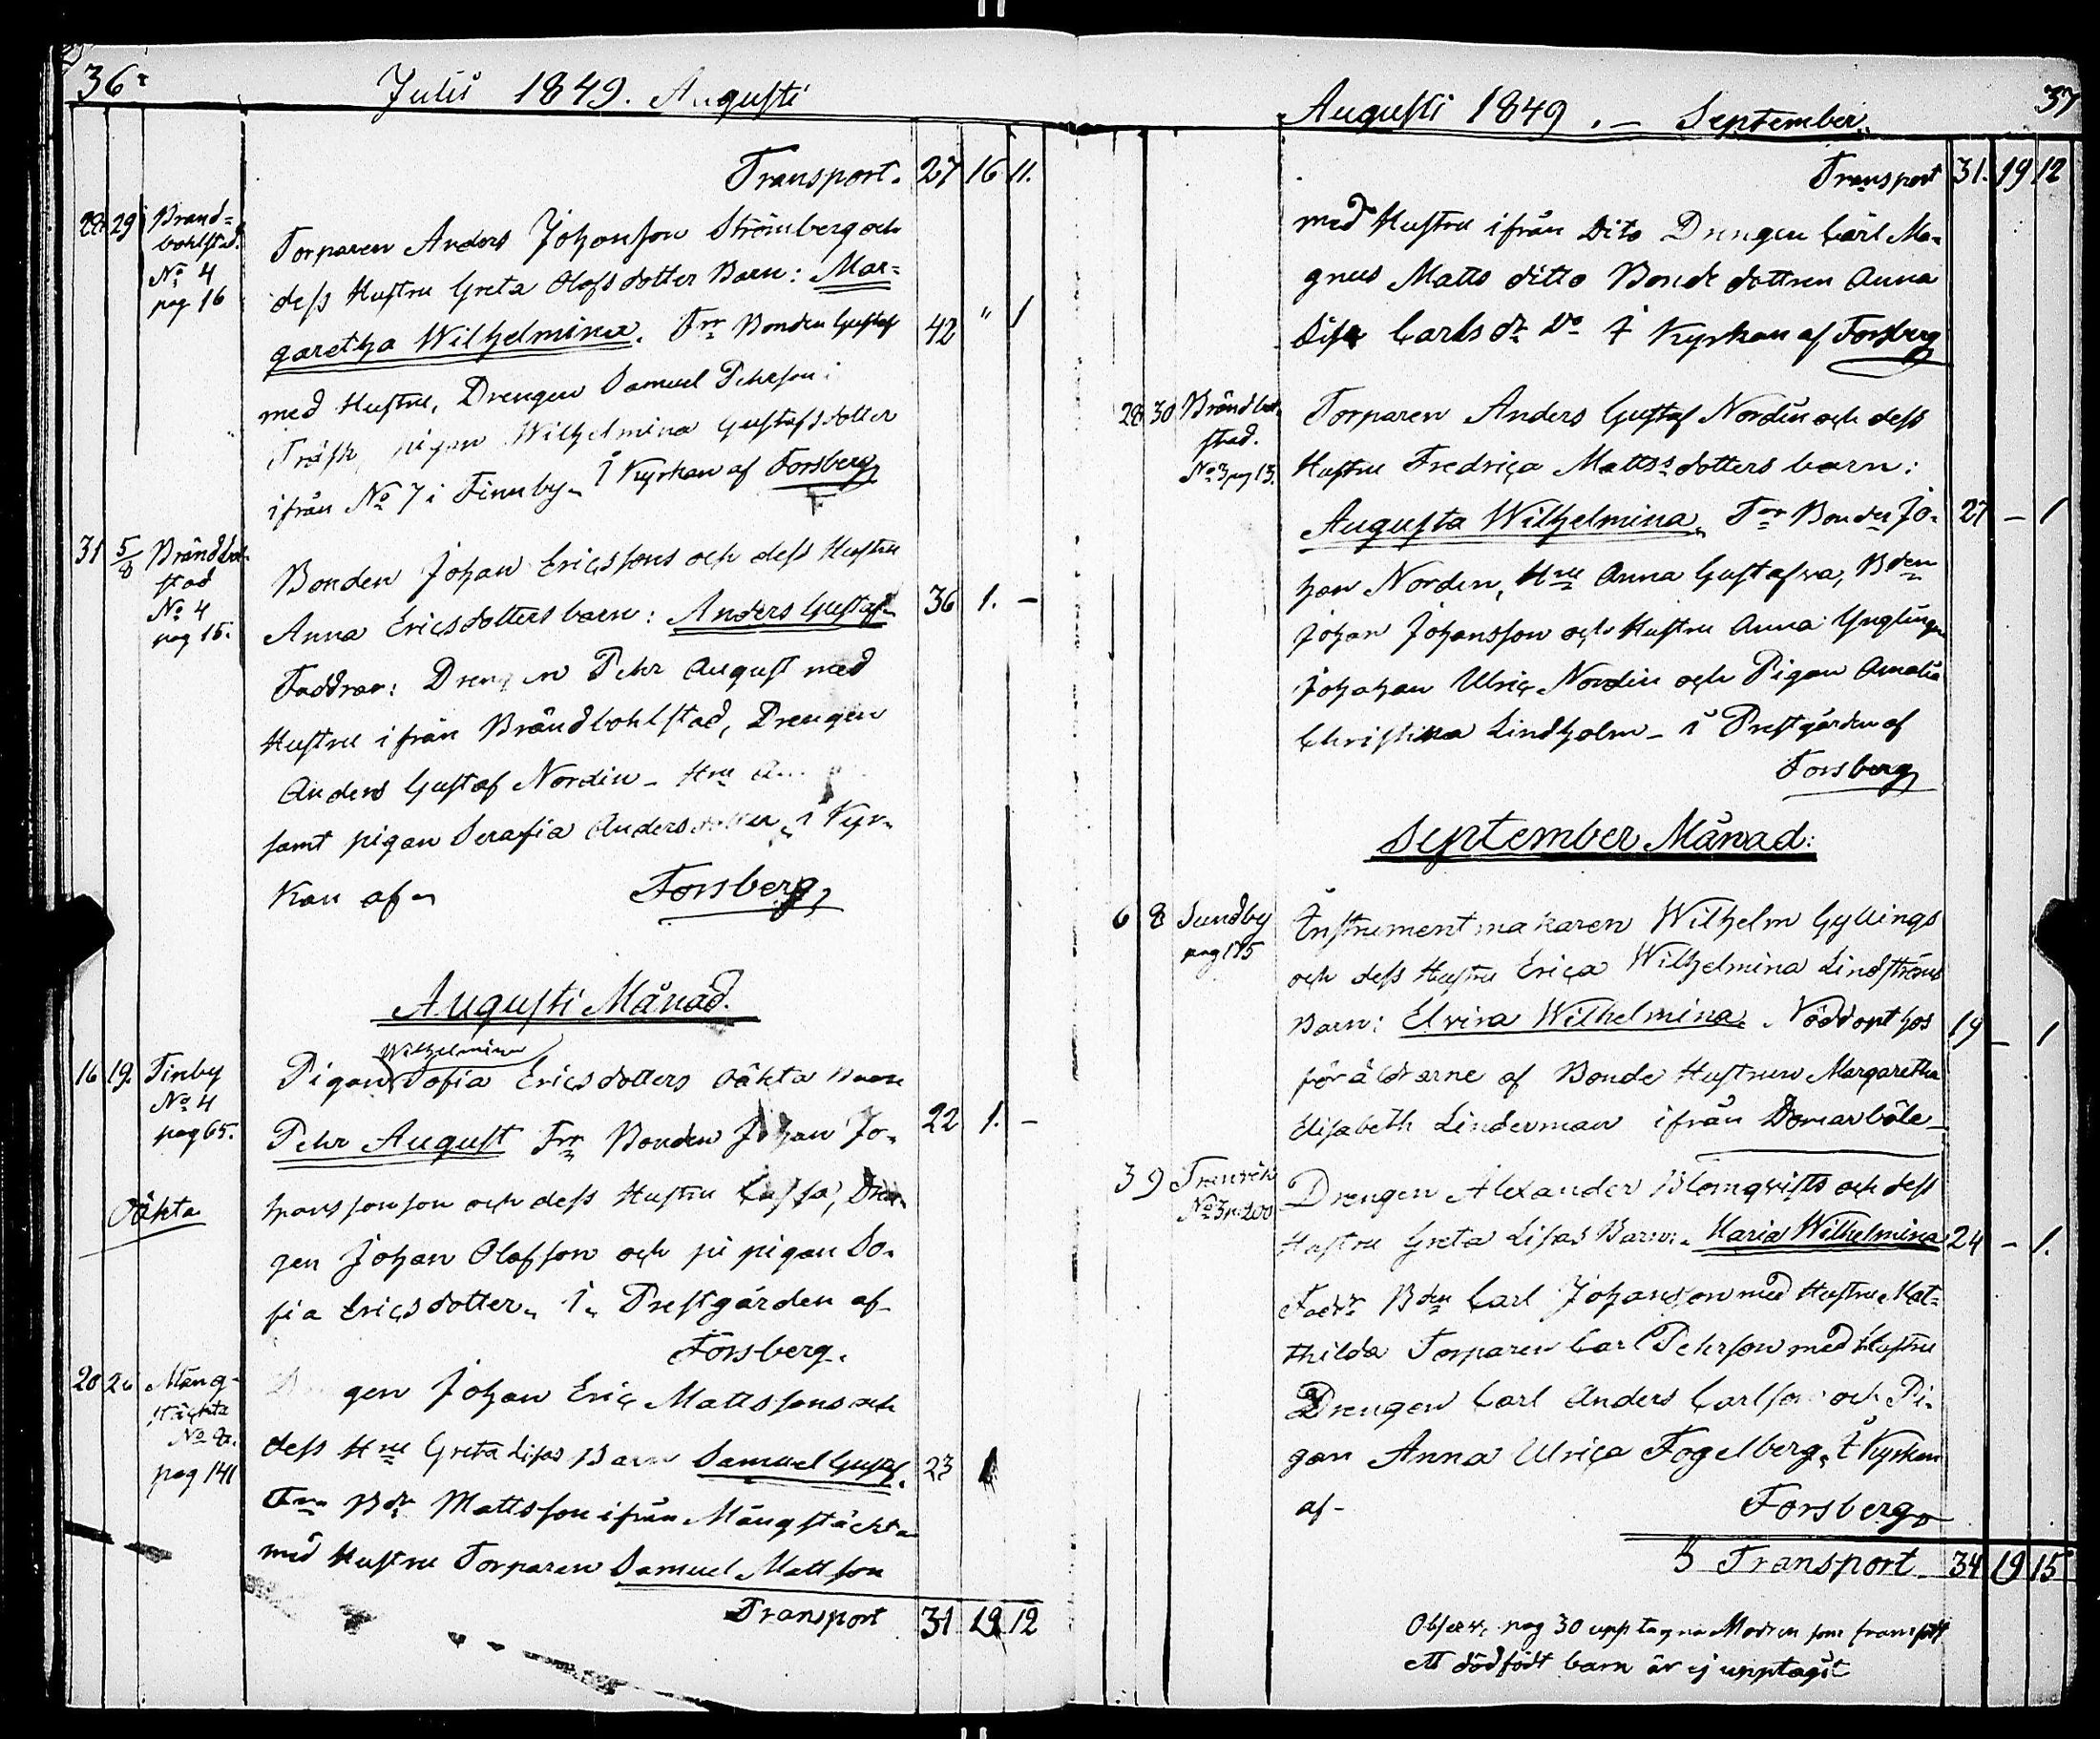 36.
Julii 1849. Augusti
Transport. 27 16 11.
28 29 Brändbohlstad. No 4 pag 16
Torparen Anders Johansson Strömberg och
dess Hustru Greta Olofsdotter Barn: Mar=
garetha Wilhelmina. Frr Bonden Gustaf 42 " 1
med Hustru, Drengen Samuel Pehrson i
Träsk, pigan Wilhelmina Gustafsdotter
ifrån No 7 i Finnby. I Kyrkan af Forsberg
31 5/8 Brändbolstad No 4 pag 15.
Bonden Johan Ericssons och dess Hustru
Anna Ericsdotters barn: Anders Gustaf 36 1. -
Faddrar: Drengen Pehr August med
Hustru ifrån Brändbohlstad, Drengen
Anders Gustaf Nordin - Hru
samt pigan Serafia Andersdotter, i Kyr-
kan af Forsberg,
Augusti Månad.
16 19. Finby No 4 pag 65.
Oäkta
Wilhelmina
Pigan Sofia Ericsdotters oäkta barn
Pehr August Frr Bonden Johan Jo- 22 1. -
hanssonson och dess Hustru Cajsa, Dren-
gen Johan Olofsson och pi pigan So-
fia Ericsdotter, I Prestgården af
Forsberg.
20 26 Mångstäckta No 8. pag 141
gen Johan Eric Mattssons och
dess Hru Greta Lisas Barn Samuel Gustaf. 23 1
Frr Bdn Mattsson ifrån Mångstäckta
med Hustru Torparen Samuel Mattson
Transport 31 19 12
37
Augusti 1849. - September.
Transport 31. 19 12
med Hustru ifrån Dito Drengen Carl Ma-
gnus Matts ditto Bonde dottren Anna
Lisa Carls dr Do I Kyrkan af Forsberg
28 30 Brändbolstad. No 3 pag 13.
Torparen Anders Gustaf Nordin och dess
Hustru Fredrica Matts dotters barn:
Augusta Wilhelmina, Frr Bonden Jo- 27 - 1
han Norden, Hru Anna Gustafva, Bden
Johan Johansson och Hustru Anna Ynglingen
Johahan Ulric Nordin och Pigan Amalia
Christina Lindholm - i Prestgården af
Forsberg
September Månad:
6 8 Sundby pag 175
Instrumentmakaren Wilhelm Gyllings
och dess Hustru Erica Wilhelmina Lindströms
Barn: Elvira Wilhelmina. Nöddöpt hos 19 - 1
föräldrarne af Bonde Hustrun Margaretha
Elisabeth Linderman ifrån Domarböle
3 9
Drengen Alexander Blomqvists och dess
Hustru Greta Lisas Barn: Maria Wilhelmina 24 - 1.
Faddr Bden Carl Johansson med Hustru, Mat=
thilda Torparen Carl Pehrson med Hustru
Drengen Carl Anders Carlson och Pi-
gan Anna Ulrica Fogelberg, I Kyrkan
af - Forsberg
Transport 34 19 15
Observ. pag 30 upptagna Modren som framfödt
ett dödfödt barn är ej upptagit